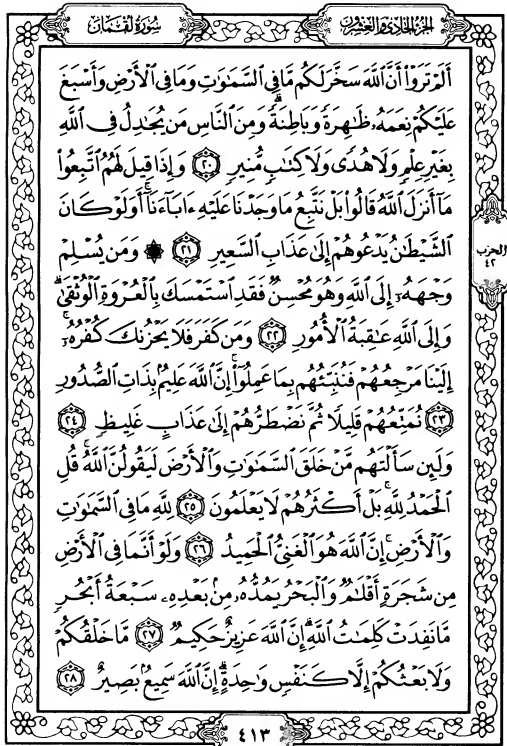 سُورَةُ لُقْمَان
الجُزءُ الحَادِي وَالعِشْرُونَ
أَلَمْ تَرَوْا۟ أَنَّ ٱللَّهَ سَخَّرَ لَكُم مَّا فِى ٱلسَّمَٰوَٰتِ وَمَا فِى ٱلْأَرْضِ وَأَسْبَغَ
عَلَيْكُمْ نِعَمَهُۥ ظَٰهِرَةً وَبَاطِنَةً ۗ وَمِنَ ٱلنَّاسِ مَن يُجَٰدِلُ فِى ٱللَّهِ
بِغَيْرِ عِلْمٍ وَلَا هُدًى وَلَا كِتَٰبٍ مُّنِيرٍ ٢٠ وَإِذَا قِيلَ لَهُمُ ٱتَّبِعُوا۟
مَآ أَنزَلَ ٱللَّهُ قَالُوا۟ بَلْ نَتَّبِعُ مَا وَجَدْنَا عَلَيْهِ ءَابَآءَنَآ ۚ أَوَلَوْ كَانَ
ٱلشَّيْطَٰنُ يَدْعُوهُمْ إِلَىٰ عَذَابِ ٱلسَّعِيرِ ٢١ ۞ وَمَن يُسْلِمْ
وَجْهَهُۥٓ إِلَى ٱللَّهِ وَهُوَ مُحْسِنٌ فَقَدِ ٱسْتَمْسَكَ بِٱلْعُرْوَةِ ٱلْوُثْقَىٰ ۗ
وَإِلَى ٱللَّهِ عَٰقِبَةُ ٱلْأُمُورِ ٢٢ وَمَن كَفَرَ فَلَا يَحْزُنكَ كُفْرُهُۥٓ ۚ
إِلَيْنَا مَرْجِعُهُمْ فَنُنَبِّئُهُم بِمَا عَمِلُوٓا۟ ۚ إِنَّ ٱللَّهَ عَلِيمٌۢ بِذَاتِ ٱلصُّدُورِ
٢٣ نُمَتِّعُهُمْ قَلِيلًا ثُمَّ نَضْطَرُّهُمْ إِلَىٰ عَذَابٍ غَلِيظٍ ٢٤
وَلَئِن سَأَلْتَهُم مَّنْ خَلَقَ ٱلسَّمَٰوَٰتِ وَٱلْأَرْضَ لَيَقُولُنَّ ٱللَّهُ ۚ قُلِ
ٱلْحَمْدُ لِلَّهِ ۚ بَلْ أَكْثَرُهُمْ لَا يَعْلَمُونَ ٢٥ لِلَّهِ مَا فِى ٱلسَّمَٰوَٰتِ
وَٱلْأَرْضِ ۚ إِنَّ ٱللَّهَ هُوَ ٱلْغَنِىُّ ٱلْحَمِيدُ ٢٦ وَلَوْ أَنَّمَا فِى ٱلْأَرْضِ
مِن شَجَرَةٍ أَقْلَٰمٌ وَٱلْبَحْرُ يَمُدُّهُۥ مِنۢ بَعْدِهِۦ سَبْعَةُ أَبْحُرٍ
مَّا نَفِدَتْ كَلِمَٰتُ ٱللَّهِ ۗ إِنَّ ٱللَّهَ عَزِيزٌ حَكِيمٌ ٢٧ مَّا خَلْقُكُمْ
وَلَا بَعْثُكُمْ إِلَّا كَنَفْسٍ وَٰحِدَةٍ ۗ إِنَّ ٱللَّهَ سَمِيعٌۢ بَصِيرٌ ٢٨
الحزب
٤٢
٤١٣